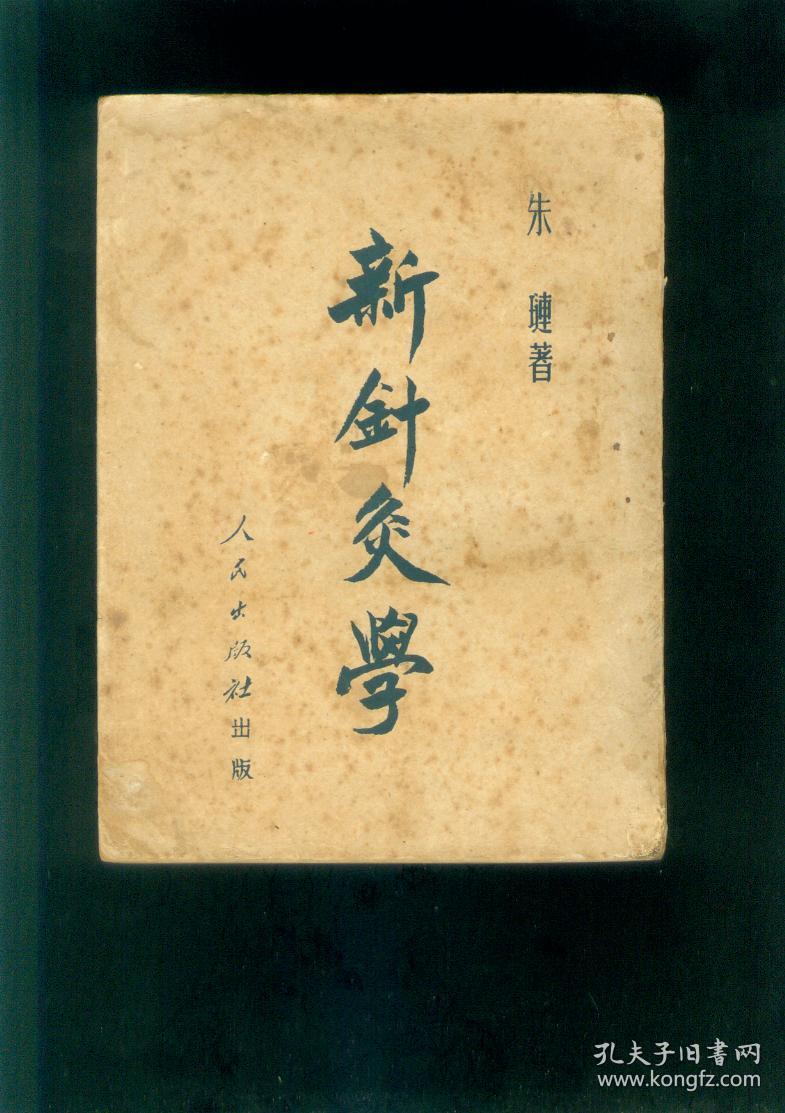 朱璉著
新針灸學
人民出版社出版
孔夫子旧書网
www.kongfz.com